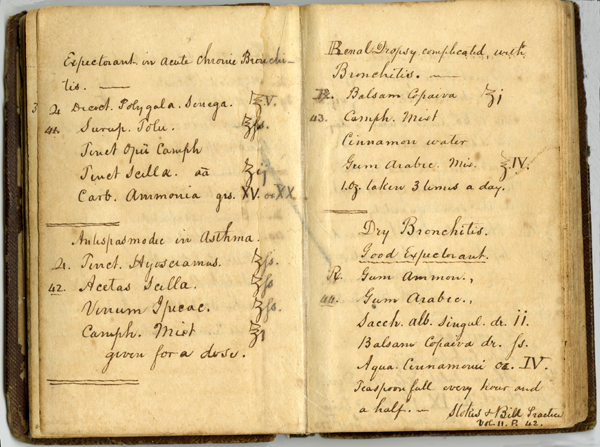 Expectorant in Acute Chronic Bronchi-
tis.
3 Decoct. Polygala. Senega. ℥V.
41. Syrup. Tolu. ℥fs.
Tinct Opii Camph
Tinct Scilla. aa ʒi
Carb. Ammonia grs. XV. or XX
Antispasmodic in Asthma.
Tinct. Hyosciamus. ʒfs.
42. Acetas Scilla. ʒfs
Vinum Ipecac. ʒfs.
Camph. Mist ℥j
given for a dose.
Renal Dropsy complicated with
Bronchitis.
R. Balsam Copaiva ʒj
43. Camph. Mist
Cinnamon water
Gum Arabic. Mis. ℥IV.
1.Oz. taken 3 times a day.
Dry Bronchitis.
Good Expectorant.
R. Gum Ammon.,
44. Gum Arabic.,
Sacch. alb. singul. dr. ii.
Balsam Copaiva dr. fs.
Aqua Cinnamonii oz. IV.
Teaspoonfull every hour and
a half. — Stokes & Bell Practice
Vol. II. P. 42.